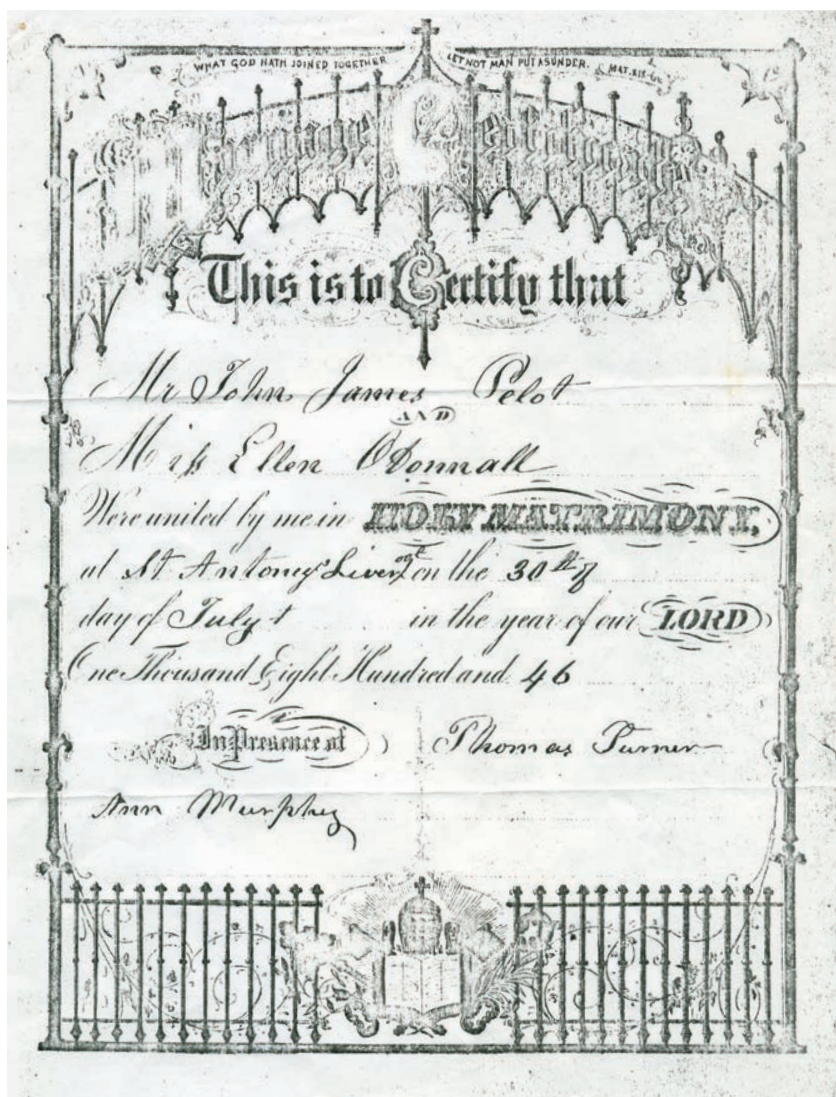 WHAT GOD HATH JOINED TOGETHER LET NOT MAN PUT ASUNDER. MAT. XIX
Marriage Certificate
This is to Certify that
Mr John James Pelot
AND
Miss Ellen ODonnall
Were united by me in HOLY MATRIMONY,
at St Antonys Liver on the 30th of
day of July in the year of our LORD
One Thousand Eight Hundred and 46
In Presence of Thomas Turner
Ann Murphy